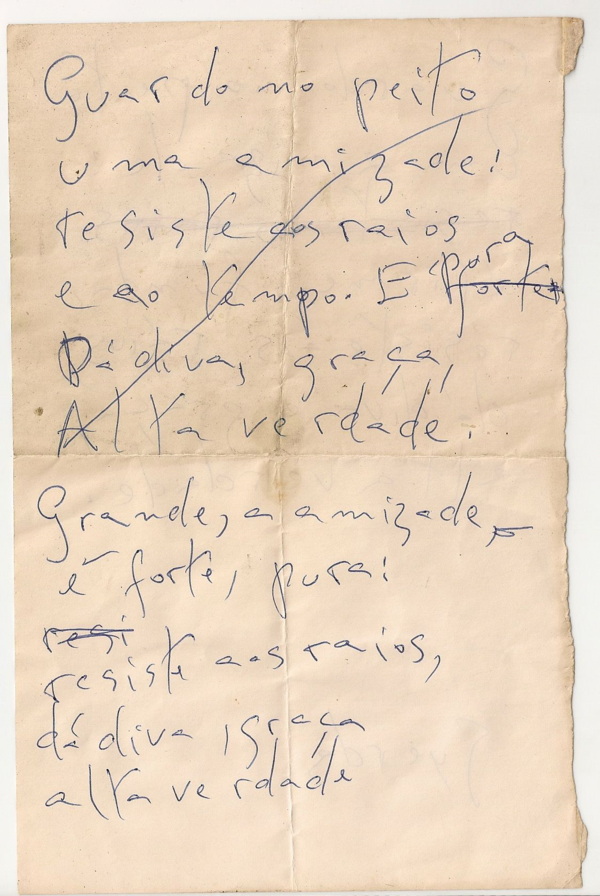 Guardo no peito
uma amizade:
resiste aos raios
e ao tempo. E pura
forte
Dádiva, graça,
Alta verdade.
Grande, a amizade,
é forte, pura:
resi
resiste aos raios,
dádiva, graça
alta verdade